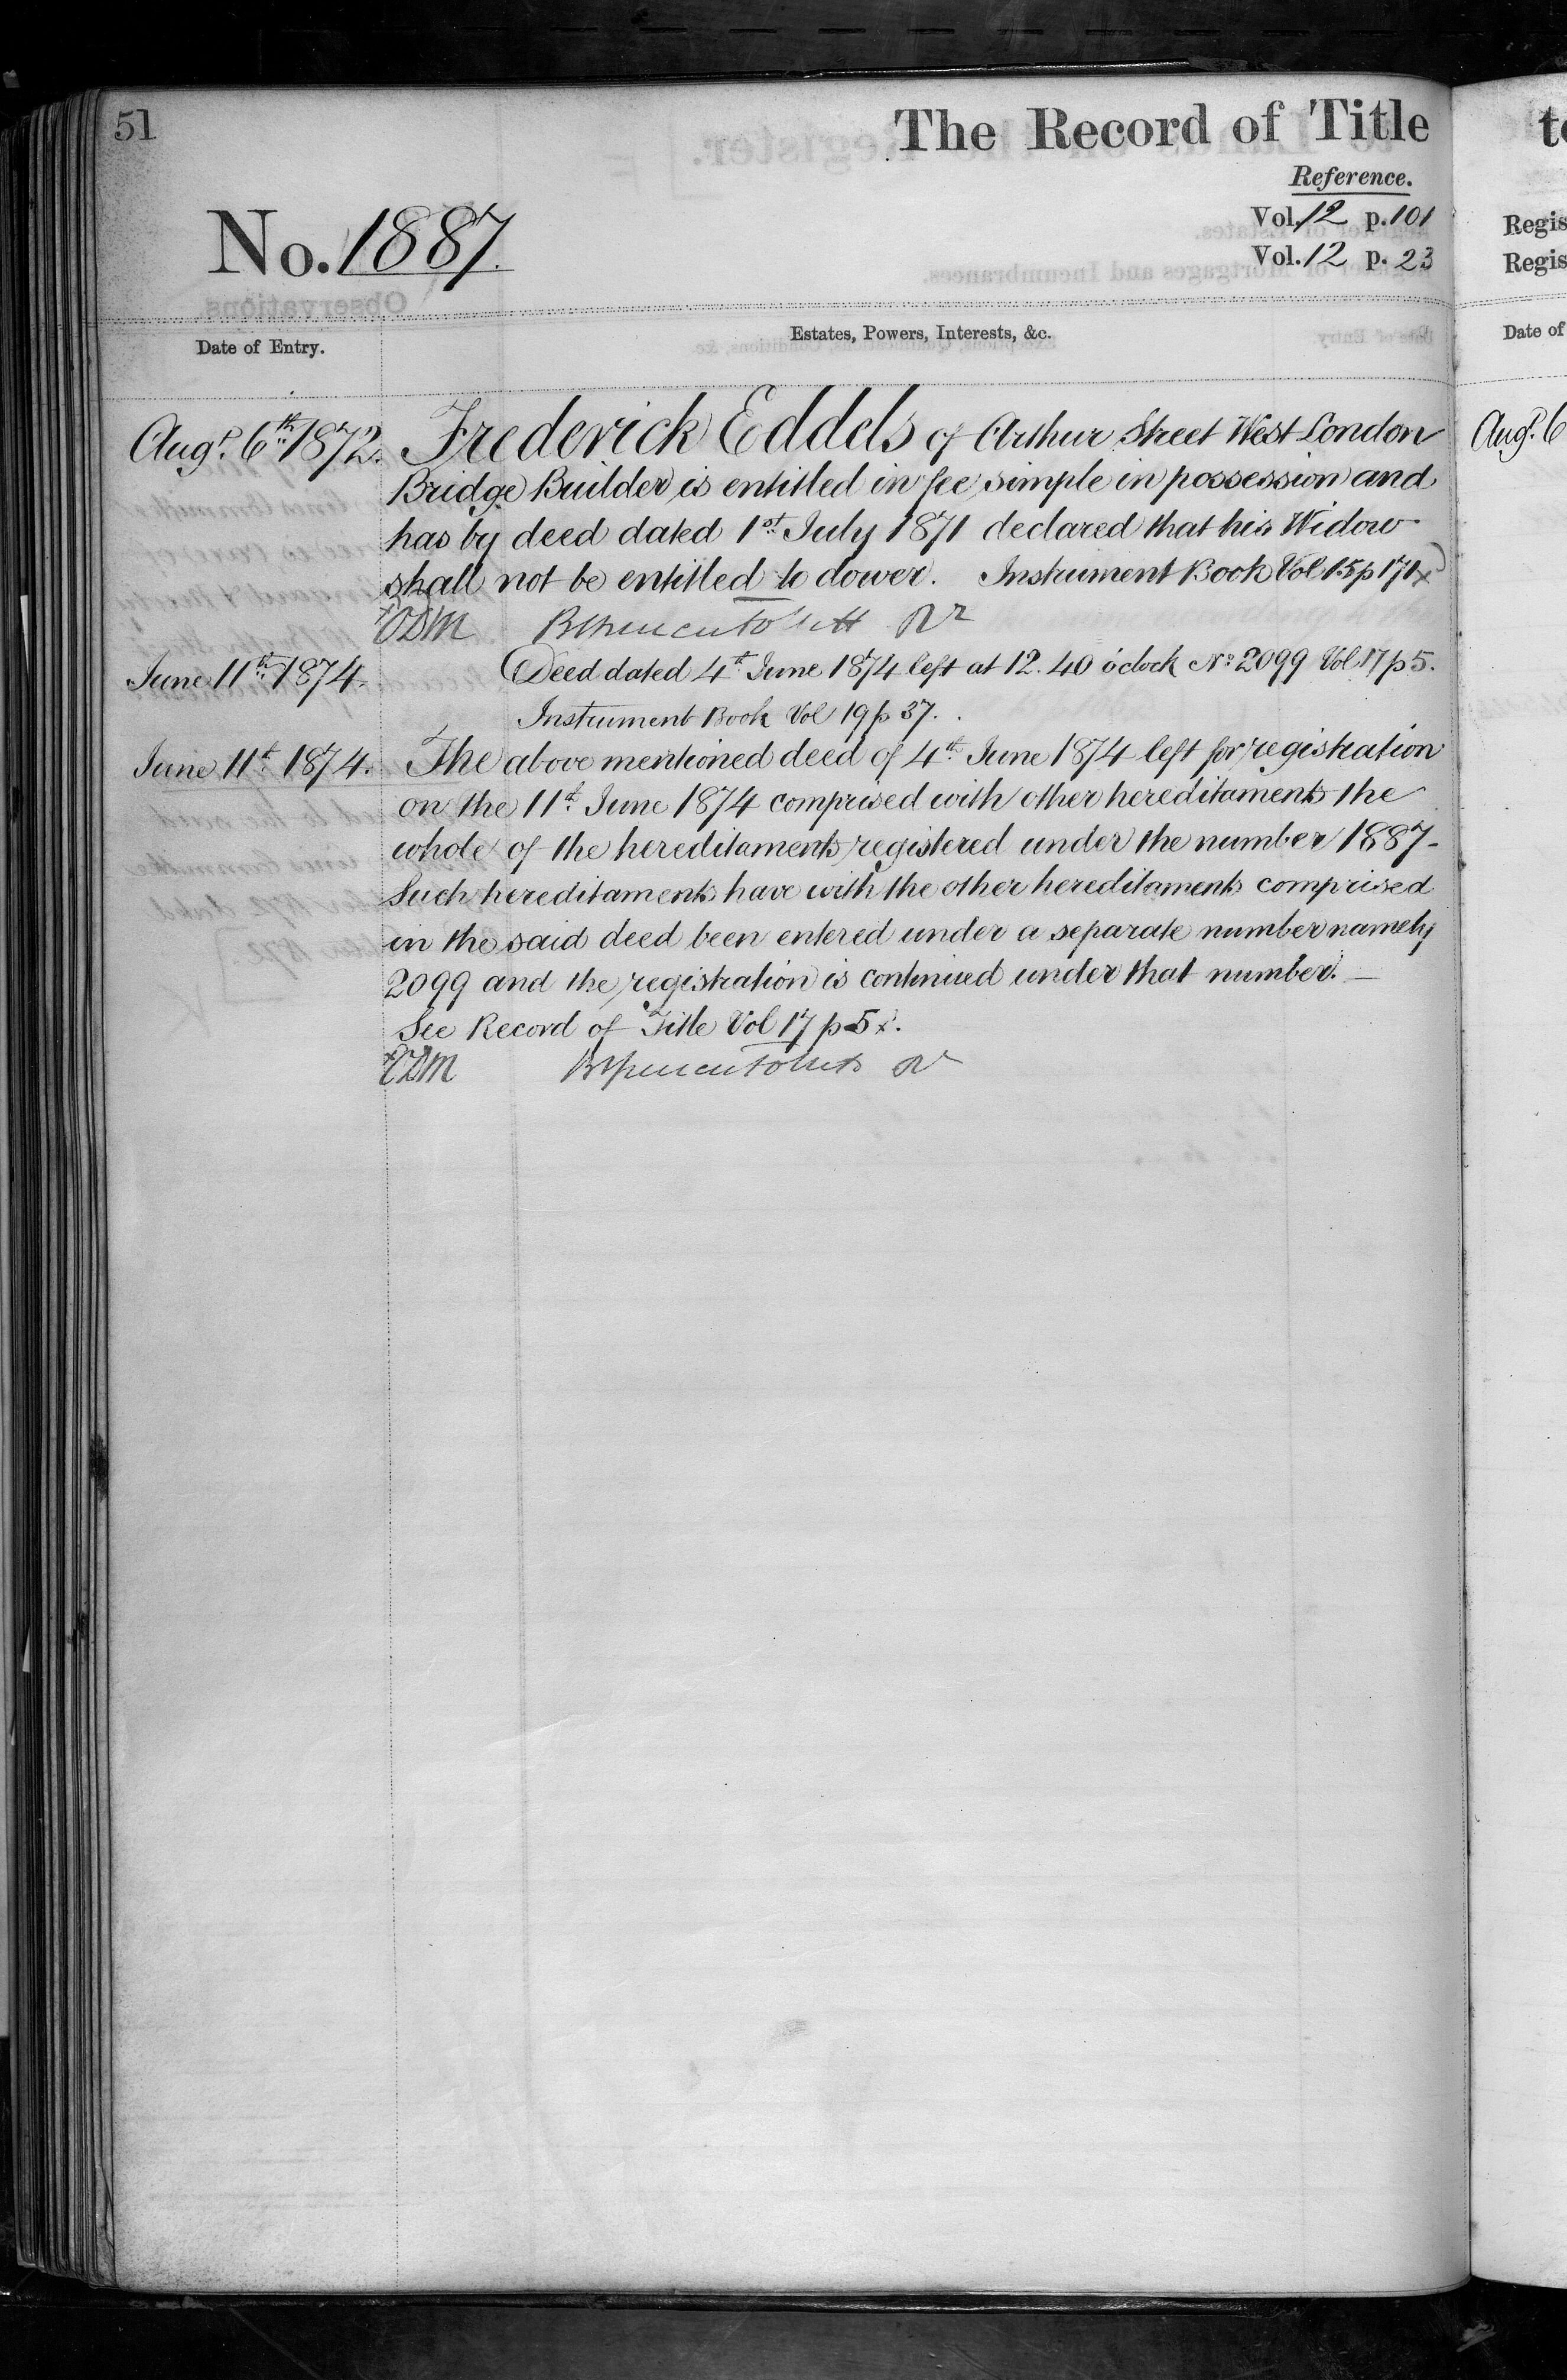 51
The Record of Title
Reference.
No. 1887.
Vol. 12 p. 101
Vol. 12 p. 23
Date of Entry.
Estates, Powers, Interests, &c.
Augt. 6th 1872. Frederick Eddels of Arthur Street West London
Bridge Builder is entitled in fee simple in possession and
has by deed dated 1st July 1871 declared that his Widow
shall not be entitled to dower. Instrument Book Vol 15 p 171 x
June 11th 1874. Deed dated 4th June 1874 left at 12.40 o'clock No 2099 Vol 17 p 5.
Instrument Book Vol 19 p 37.
June 11th 1874. The above mentioned deed of 4th June 1874 left for registration
on the 11th June 1874 comprised with other hereditaments the
whole of the hereditaments registered under the number 1887-
Such hereditaments have with the other hereditaments comprised
in the said deed been entered under a separate number namely
2099 and the registration is continued under that number. —
See Record of Title Vol 17 p 5 x.
Regis
Regis
Date of
Augt. 6